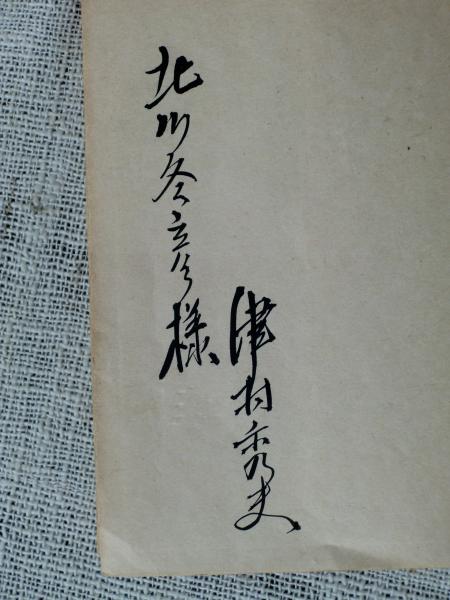 北川冬彦様
津村秀夫